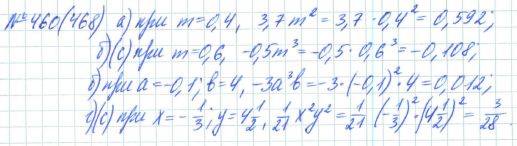 № 460(468) а) при m=0,4, 3,7m² = 3,7·0,4² = 0,592;
б)(с) при m=0,6, -0,5m³ = -0,5·0,6³ = -0,108;
б) при a=-0,1; b=4, -3a³b = -3·(-0,1)²·4 = 0,012;
г)(с) при x=-1/3; y=4 1/2, 1/21 x²y² = 1/21 (-1/3)²·(4 1/2)² = 3/28.